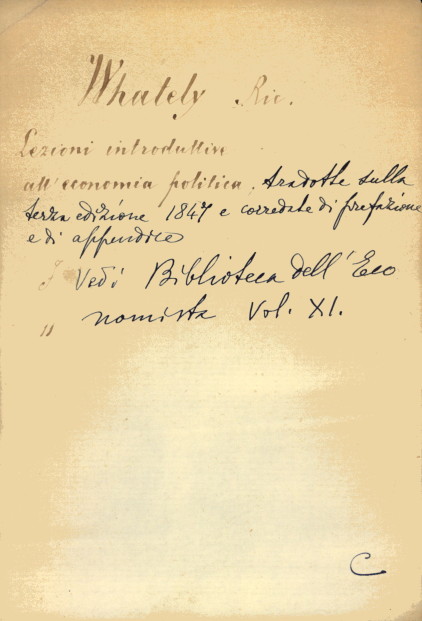 Whately Ric.
Lezioni introduttive
all'economia politica, tradotte sulla
terza edizione 1847 e corredate di prefazione
e di appendice
Vedi Biblioteca dell'Eco
nomista Vol. XI.
"
C